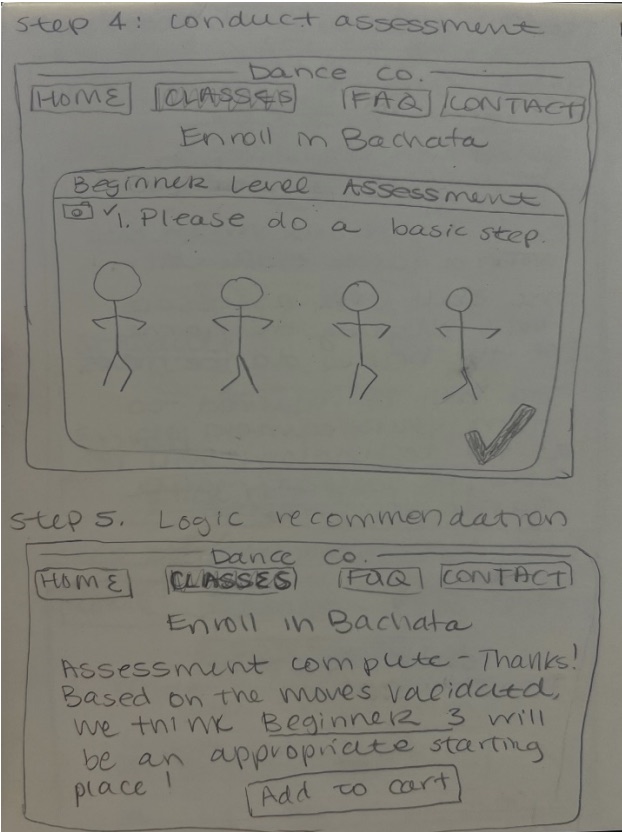 Step 4: Conduct assessment
Dance Co.
HOME CLASSES FAQ CONTACT
Enroll in Bachata
Beginner Level Assessment
1. Please do a basic step.
Step 5. Logic recommendation
Dance Co.
HOME CLASSES FAQ CONTACT
Enroll in Bachata
Assessment complete - Thanks!
Based on the moves validated,
we think Beginner 3 will
be an appropriate starting
place!
Add to cart